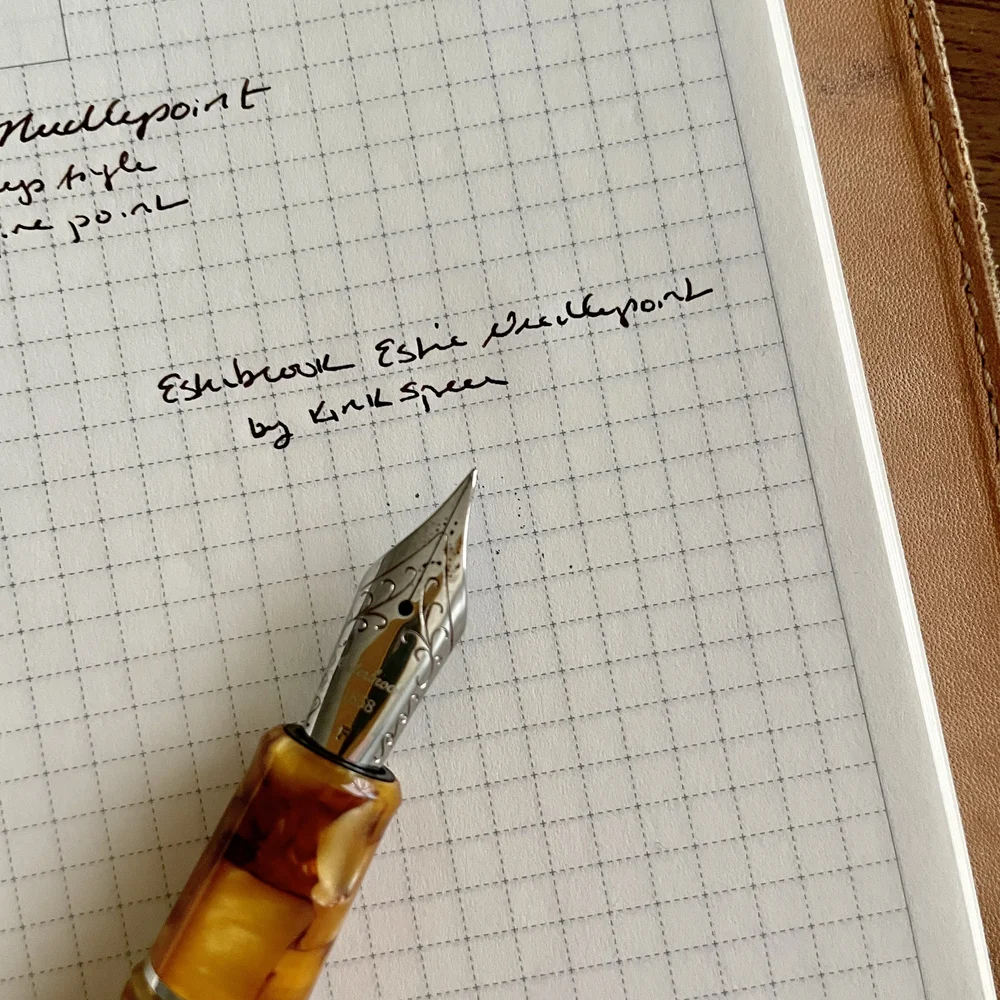 Needlepoint
style
point
Esterbrook Estie Needlepoint
by Kirk Speer